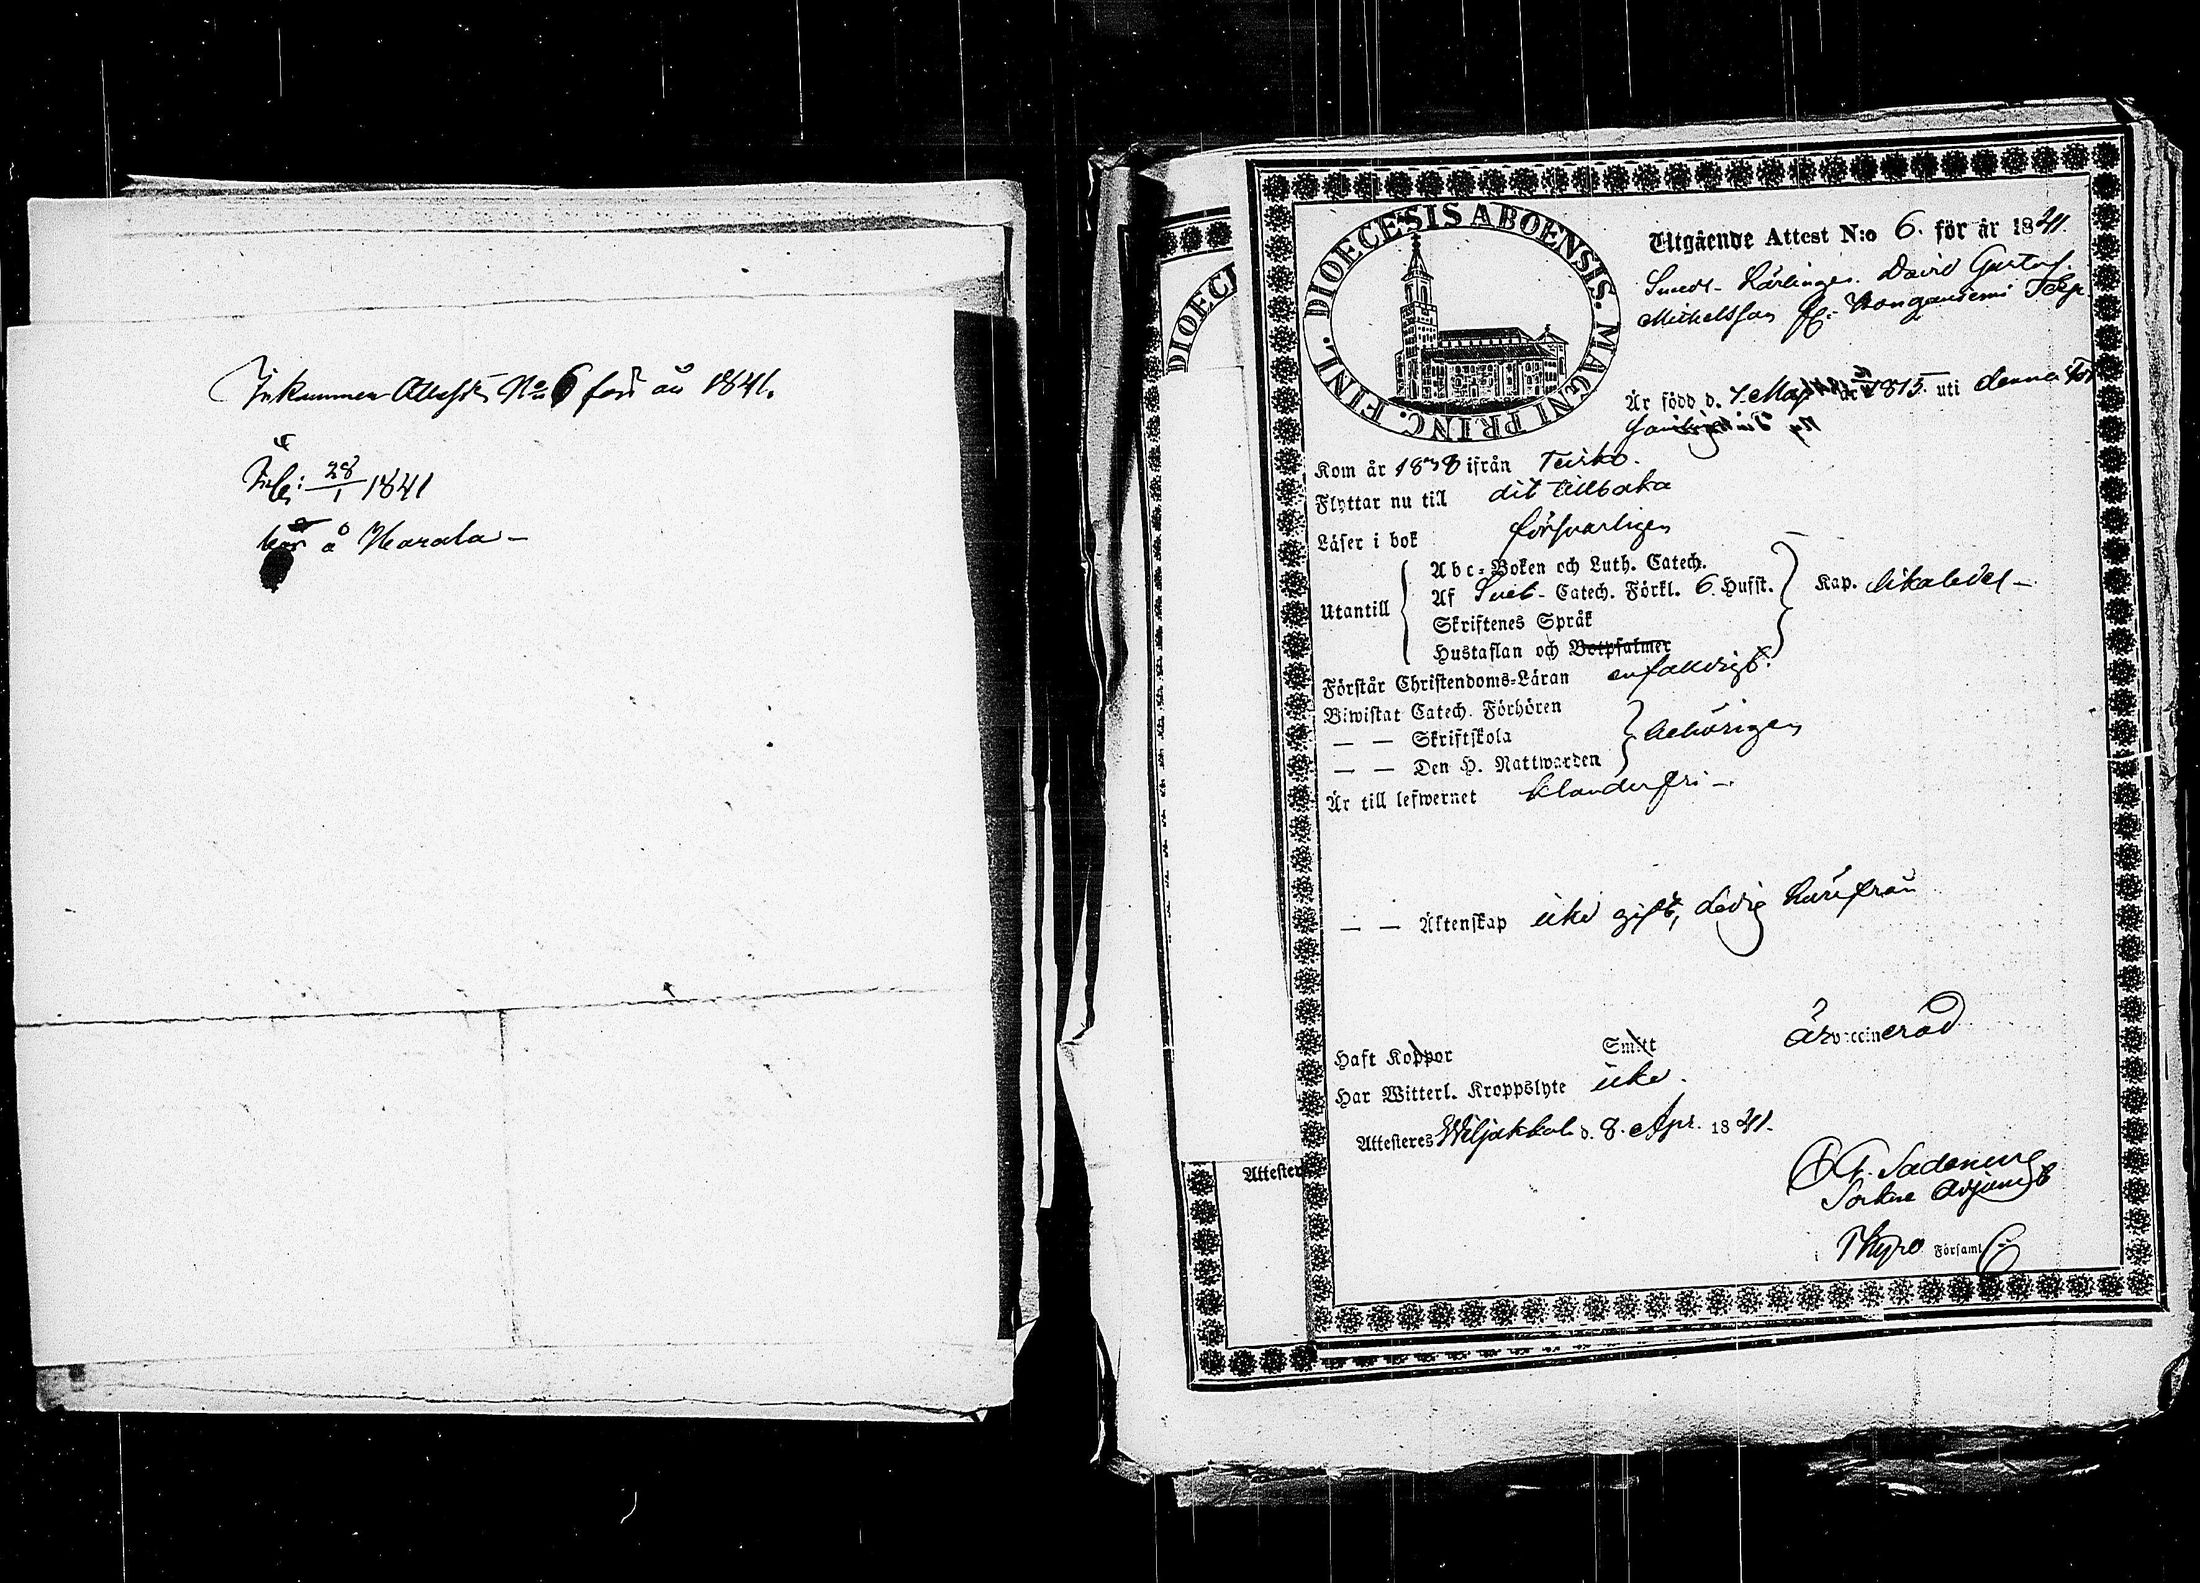 Inkommen Attest No 6 för år 1841.
28/1 1841
å Harala -
DIOECESIS ABOENSIS. MAGNI PRINC. FINL.
DIOECE
Utgående Attest N:o 6. för år 1841.
Smeds- Lärlingen David Gustaf
Michelsson
Är född d. 7. Maj 1815. uti denna För
samling
Kom år 1838 ifrån Teisko.
Flyttar nu till dit tillbaka
Läser i bok försvarligen
Utantill
Abc-Boken och Luth. Catech.
Af Sveb- Catech. Förkl. 6. Hufst. Kap. likaledes -
Skriftenes Språk
Hustaflan och Botpsalmer
Förstår Christendoms-Läran enfaldigt.
Biwistat Catech. Förhören
— — Skriftskola behörigen
— — Den H. Nattwarden
Är till lefwernet klanderfri -.
— — Äktenskap icke gift, ledig härifrån
Haft Koppor Smitt är vaccinerad
Har Witterl. Kroppslyte icke.
Attesteres Wiljakkala d. 8. Apr. 1841.
Attester
Sadenius
Sockne Adjunct
i Ikyro Församl.